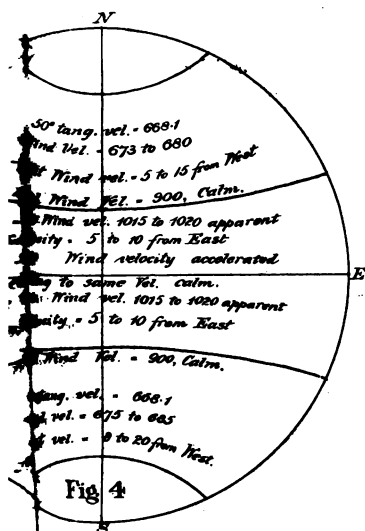 N
50° tang. vel. = 668.1
Vel. = 673 to 680
Wind vel. = 5 to 15 from West
Wind Vel. = 900, Calm.
Wind vel. 1015 to 1020 apparent
= 5 to 10 from East
Wind velocity accelerated
to same Vel. calm.
E
Wind vel. 1015 to 1020 apparent
= 5 to 10 from East
Wind Vel. = 900, Calm.
tang. vel. = 668.1
vel. = 675 to 685
vel. = 8 to 20 from West.
Fig 4
S